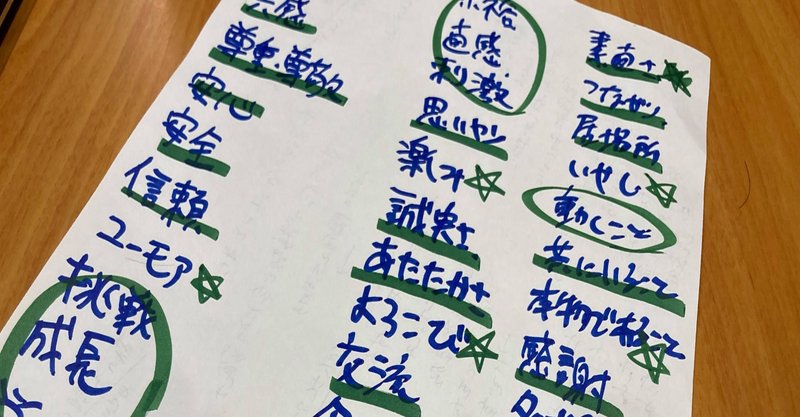 共感
尊重・尊敬
安心
安全
信頼
ユーモア
挑戦
成長
直感
刺激
思いやり
誠実さ
あたたかさ
よろこび
交流
素直さ
つながり
居場所
いやし
動くこと
共にいること
本物で在ること
感謝